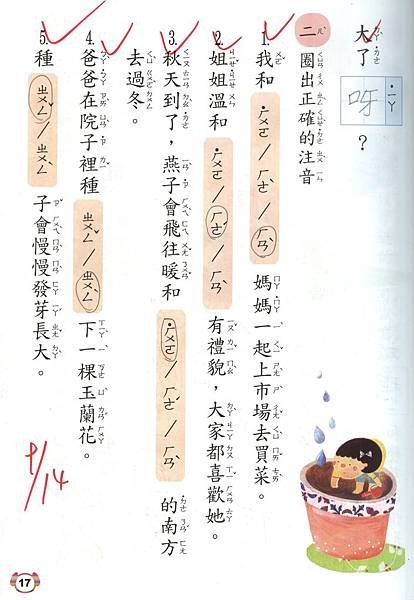 大了呀˙ㄧㄚ？
二 圈出正確的注音
1. 我和 ˙ㄏㄨㄛ / ㄏㄜˊ / ㄏㄢˋ 媽媽一起上市場去買菜。
2. 姐姐溫和 ˙ㄏㄨㄛ / ㄏㄜˊ / ㄏㄢˋ 有禮貌，大家都喜歡她。
3. 秋天到了，燕子會飛往暖和 ˙ㄏㄨㄛ / ㄏㄜˊ / ㄏㄢˋ 的南方
去過冬。
4. 爸爸在院子裡種 ㄓㄨㄥˇ / ㄓㄨㄥˋ 下一棵玉蘭花。
5. 種 ㄓㄨㄥˇ / ㄓㄨㄥˋ 子會慢慢發芽長大。
9/14
17